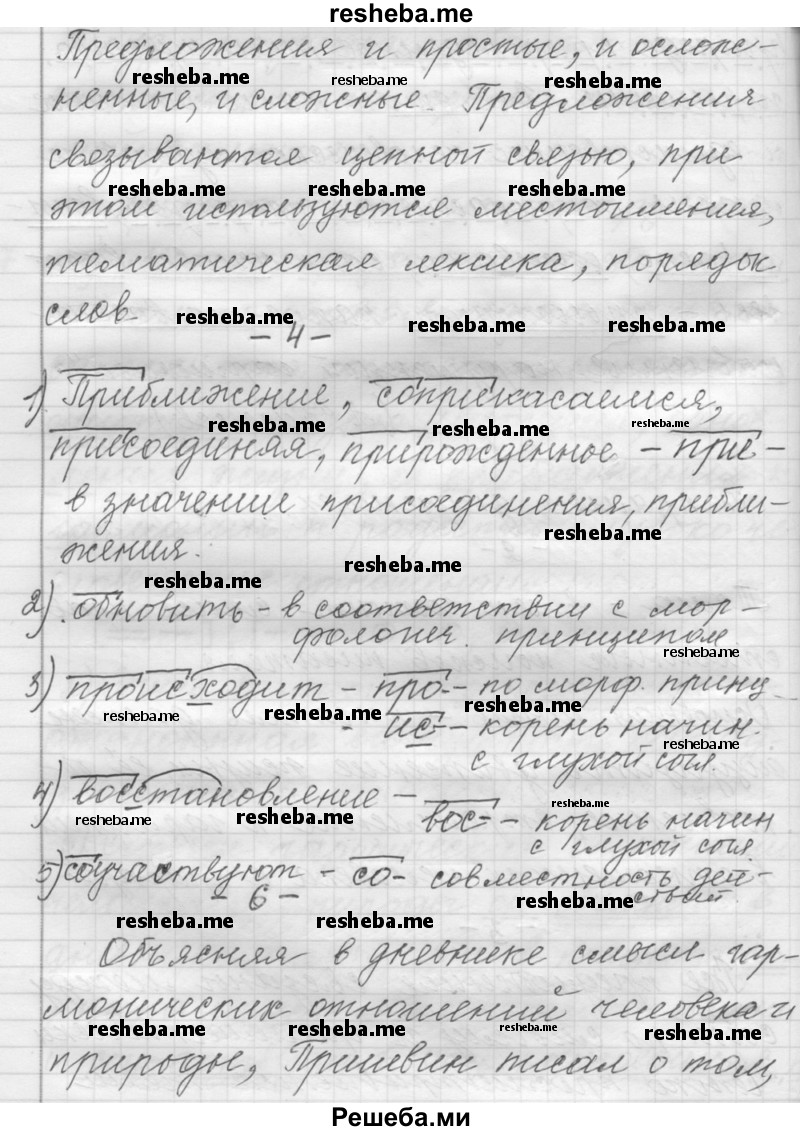 resheba.me
Предложения и простые, и ослож-
resheba.me resheba.me resheba.me
ненные, и сложные. Предложения
связываются цепной связью, при
resheba.me resheba.me resheba.me
этом используются местоимения,
тематическая лексика, порядок
слов
resheba.me resheba.me resheba.me
- 4 -
1) Приближение, соприкасаемся,
resheba.me resheba.me resheba.me
присоединяя, прирожденное - при-
в значении присоединения, прибли-
resheba.me
жения.
resheba.me
resheba.me
2). обновить - в соответствии с мор-
фологич. принципом
resheba.me
3) происходит - про- - по морф. принц.
resheba.me resheba.me resheba.me
- ис- - корень начин.
resheba.me
с глухой согл.
4) восстановление -
resheba.me
вос- - корень начин
resheba.me resheba.me
с глухой согл.
resheba.me
5) соучаствуют - со- совместность дей-
ствий.
- 6 -
resheba.me
resheba.me resheba.me
Объясняя в дневнике смысл гар-
монических отношений человека и
resheba.me resheba.me resheba.me resheba.me
природы, Пришвин писал о том,
Решеба.ми